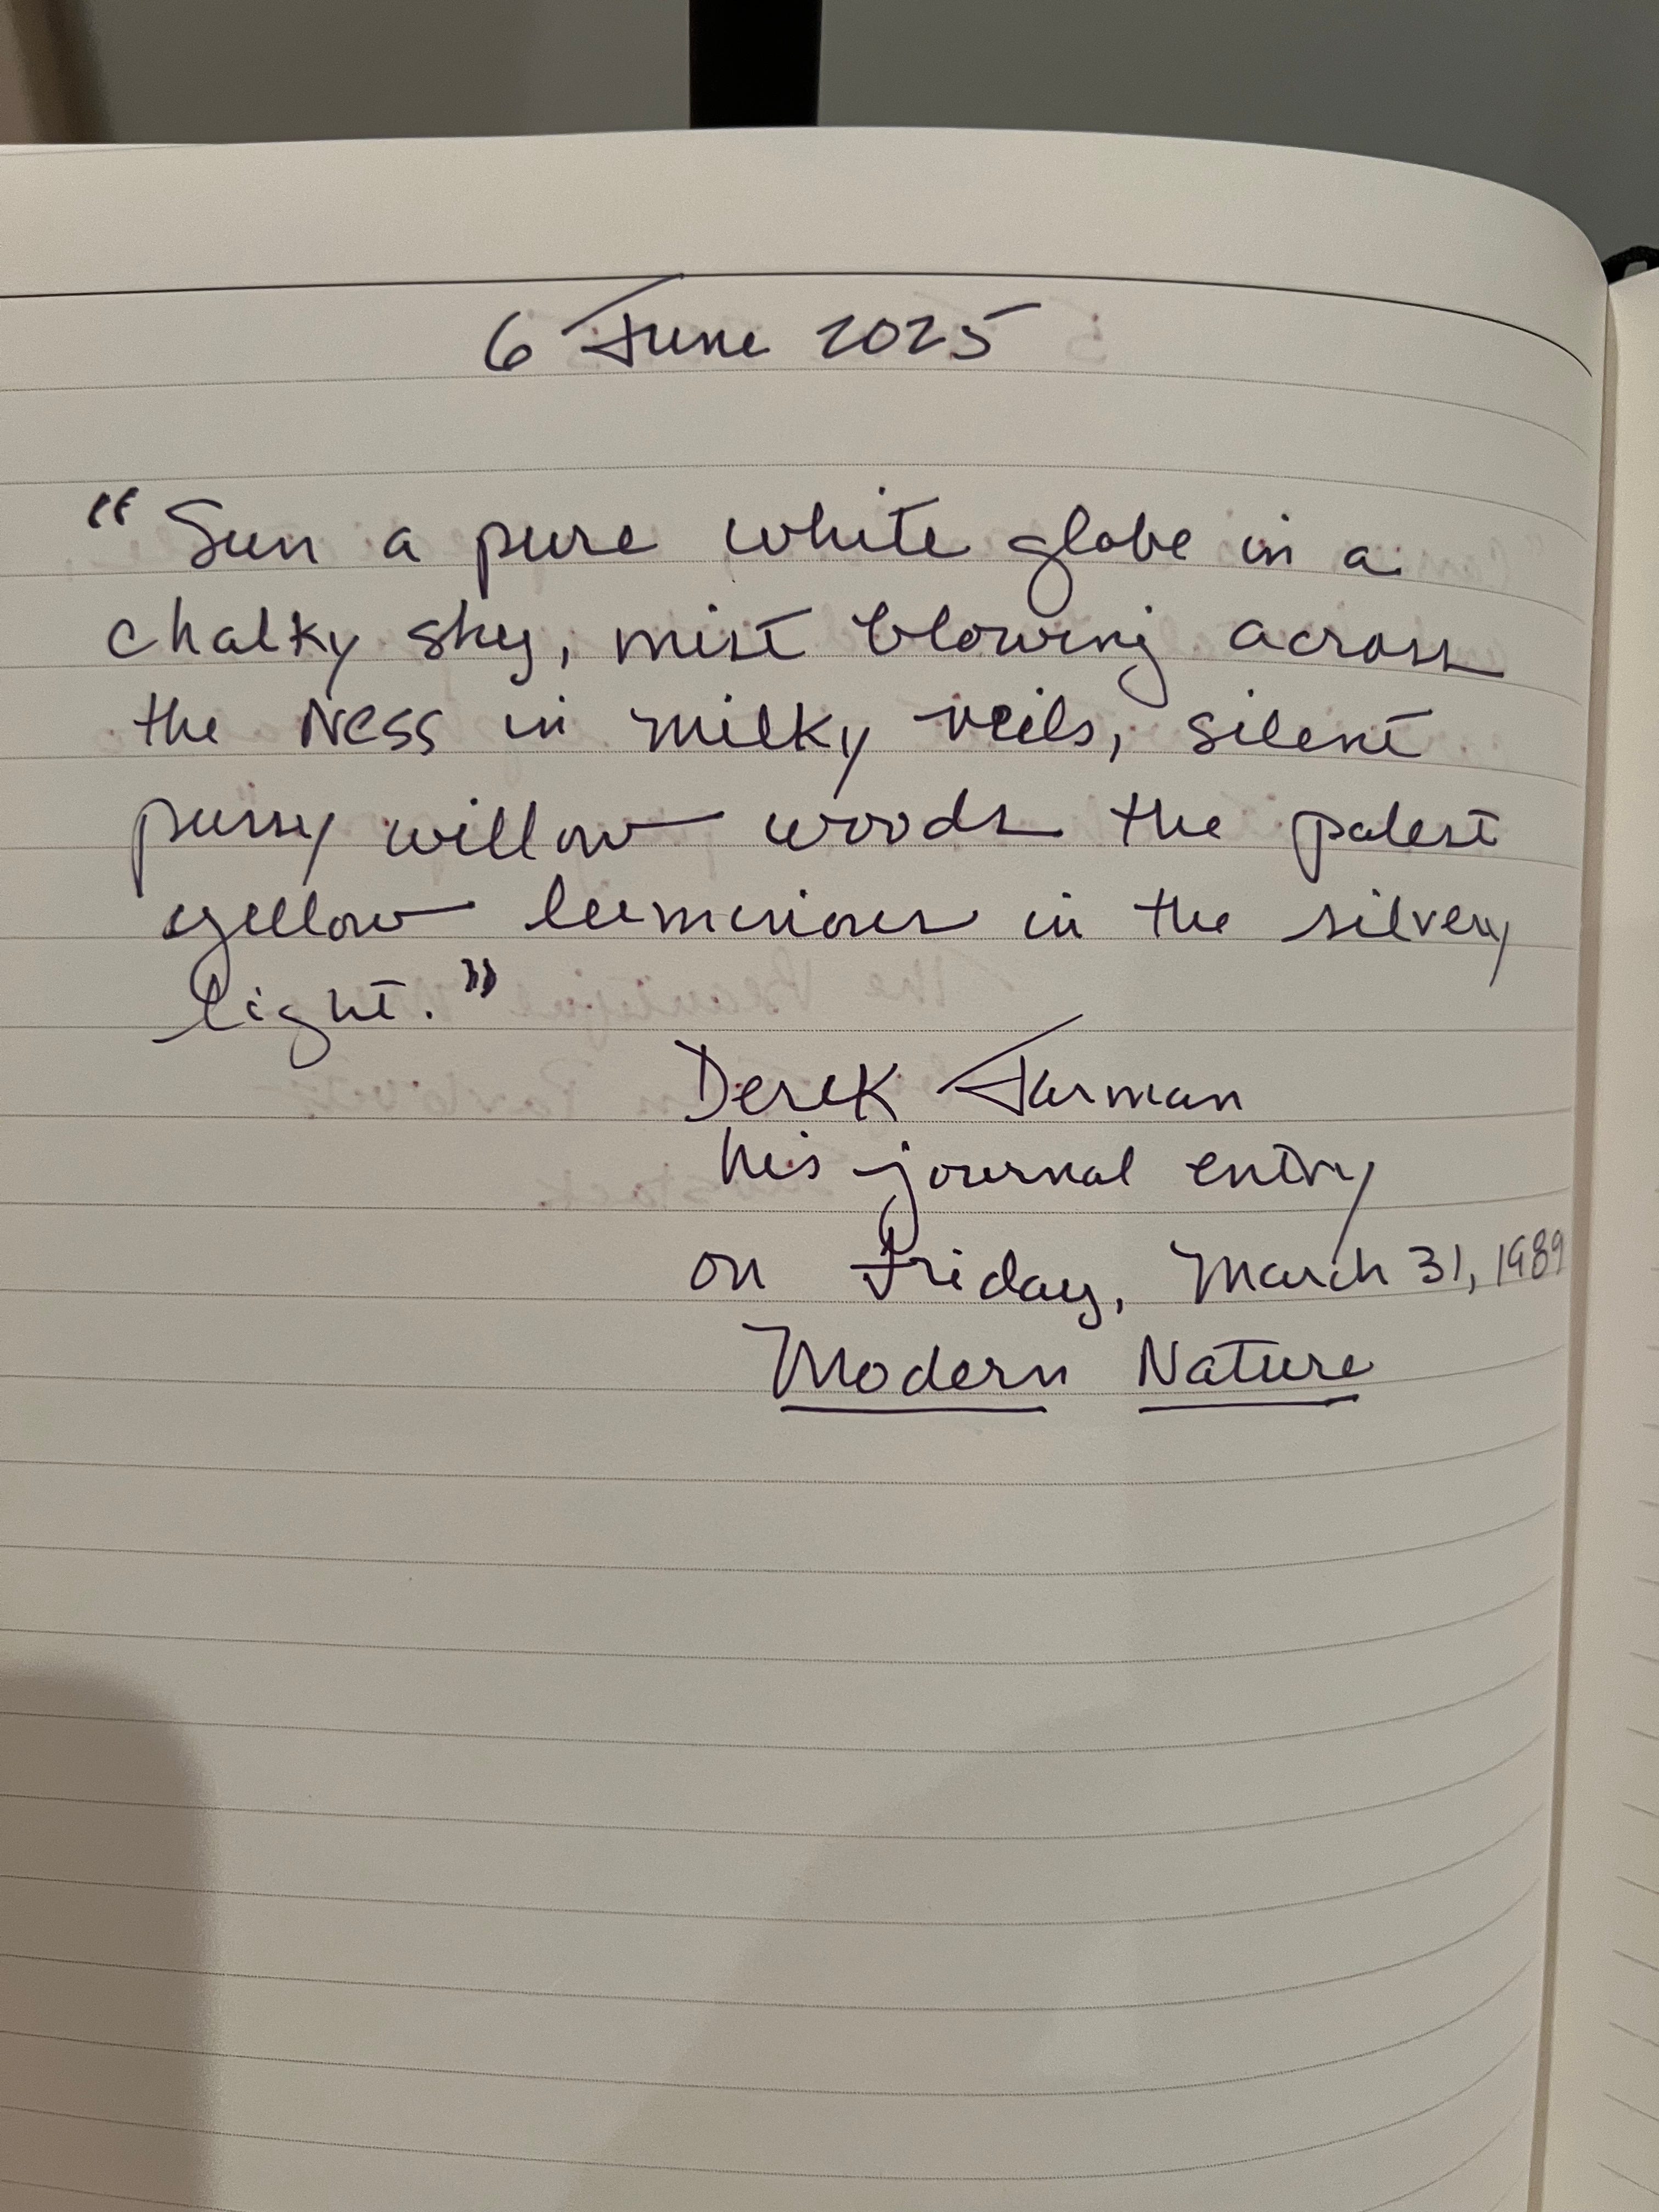 6 June 2025
"Sun a pure white globe in a
chalky sky, mist blowing across
the Ness in milky veils, silent
pussy willow woods the palest
yellow luminous in the silvery
light."
Derek Jarman
his journal entry
on Friday, March 31, 1989
Modern Nature